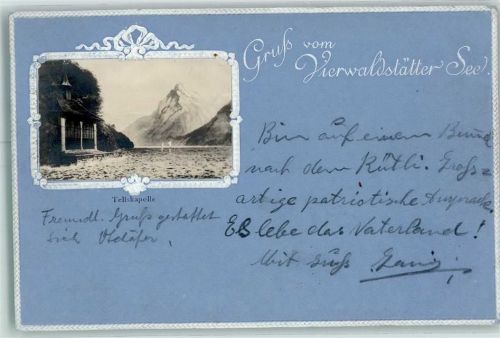 Gruß vom
Vierwaldstätter See.
Tellskapelle
Bin auf einem
nach dem Rütli. Groß=
artige patriotische
Es lebe das Vaterland!
Mit
Freundl. Gruss gestattet
sich